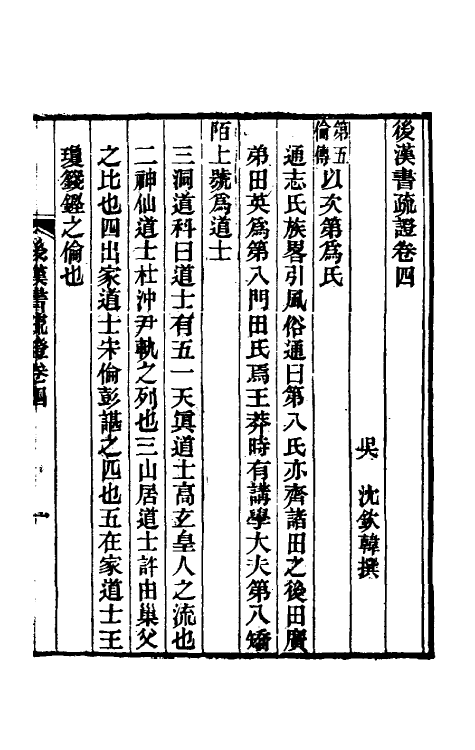 後漢書疏證卷四
吳　沈欽韓撰
第五倫傳以次第為氏
通志氏族畧引風俗通曰第八氏亦齊諸田之後田廣
弟田英為第八門田氏焉王莽時有講學大夫第八矯
陌上號為道士
三洞道科曰道士有五一天眞道士高玄皇人之流也
二神仙道士杜沖尹執之列也三山居道士許由巢父
之比也四出家道士宋倫彭諶之匹也五在家道士王
瓊籛鏗之倫也
後漢書疏證卷四　一